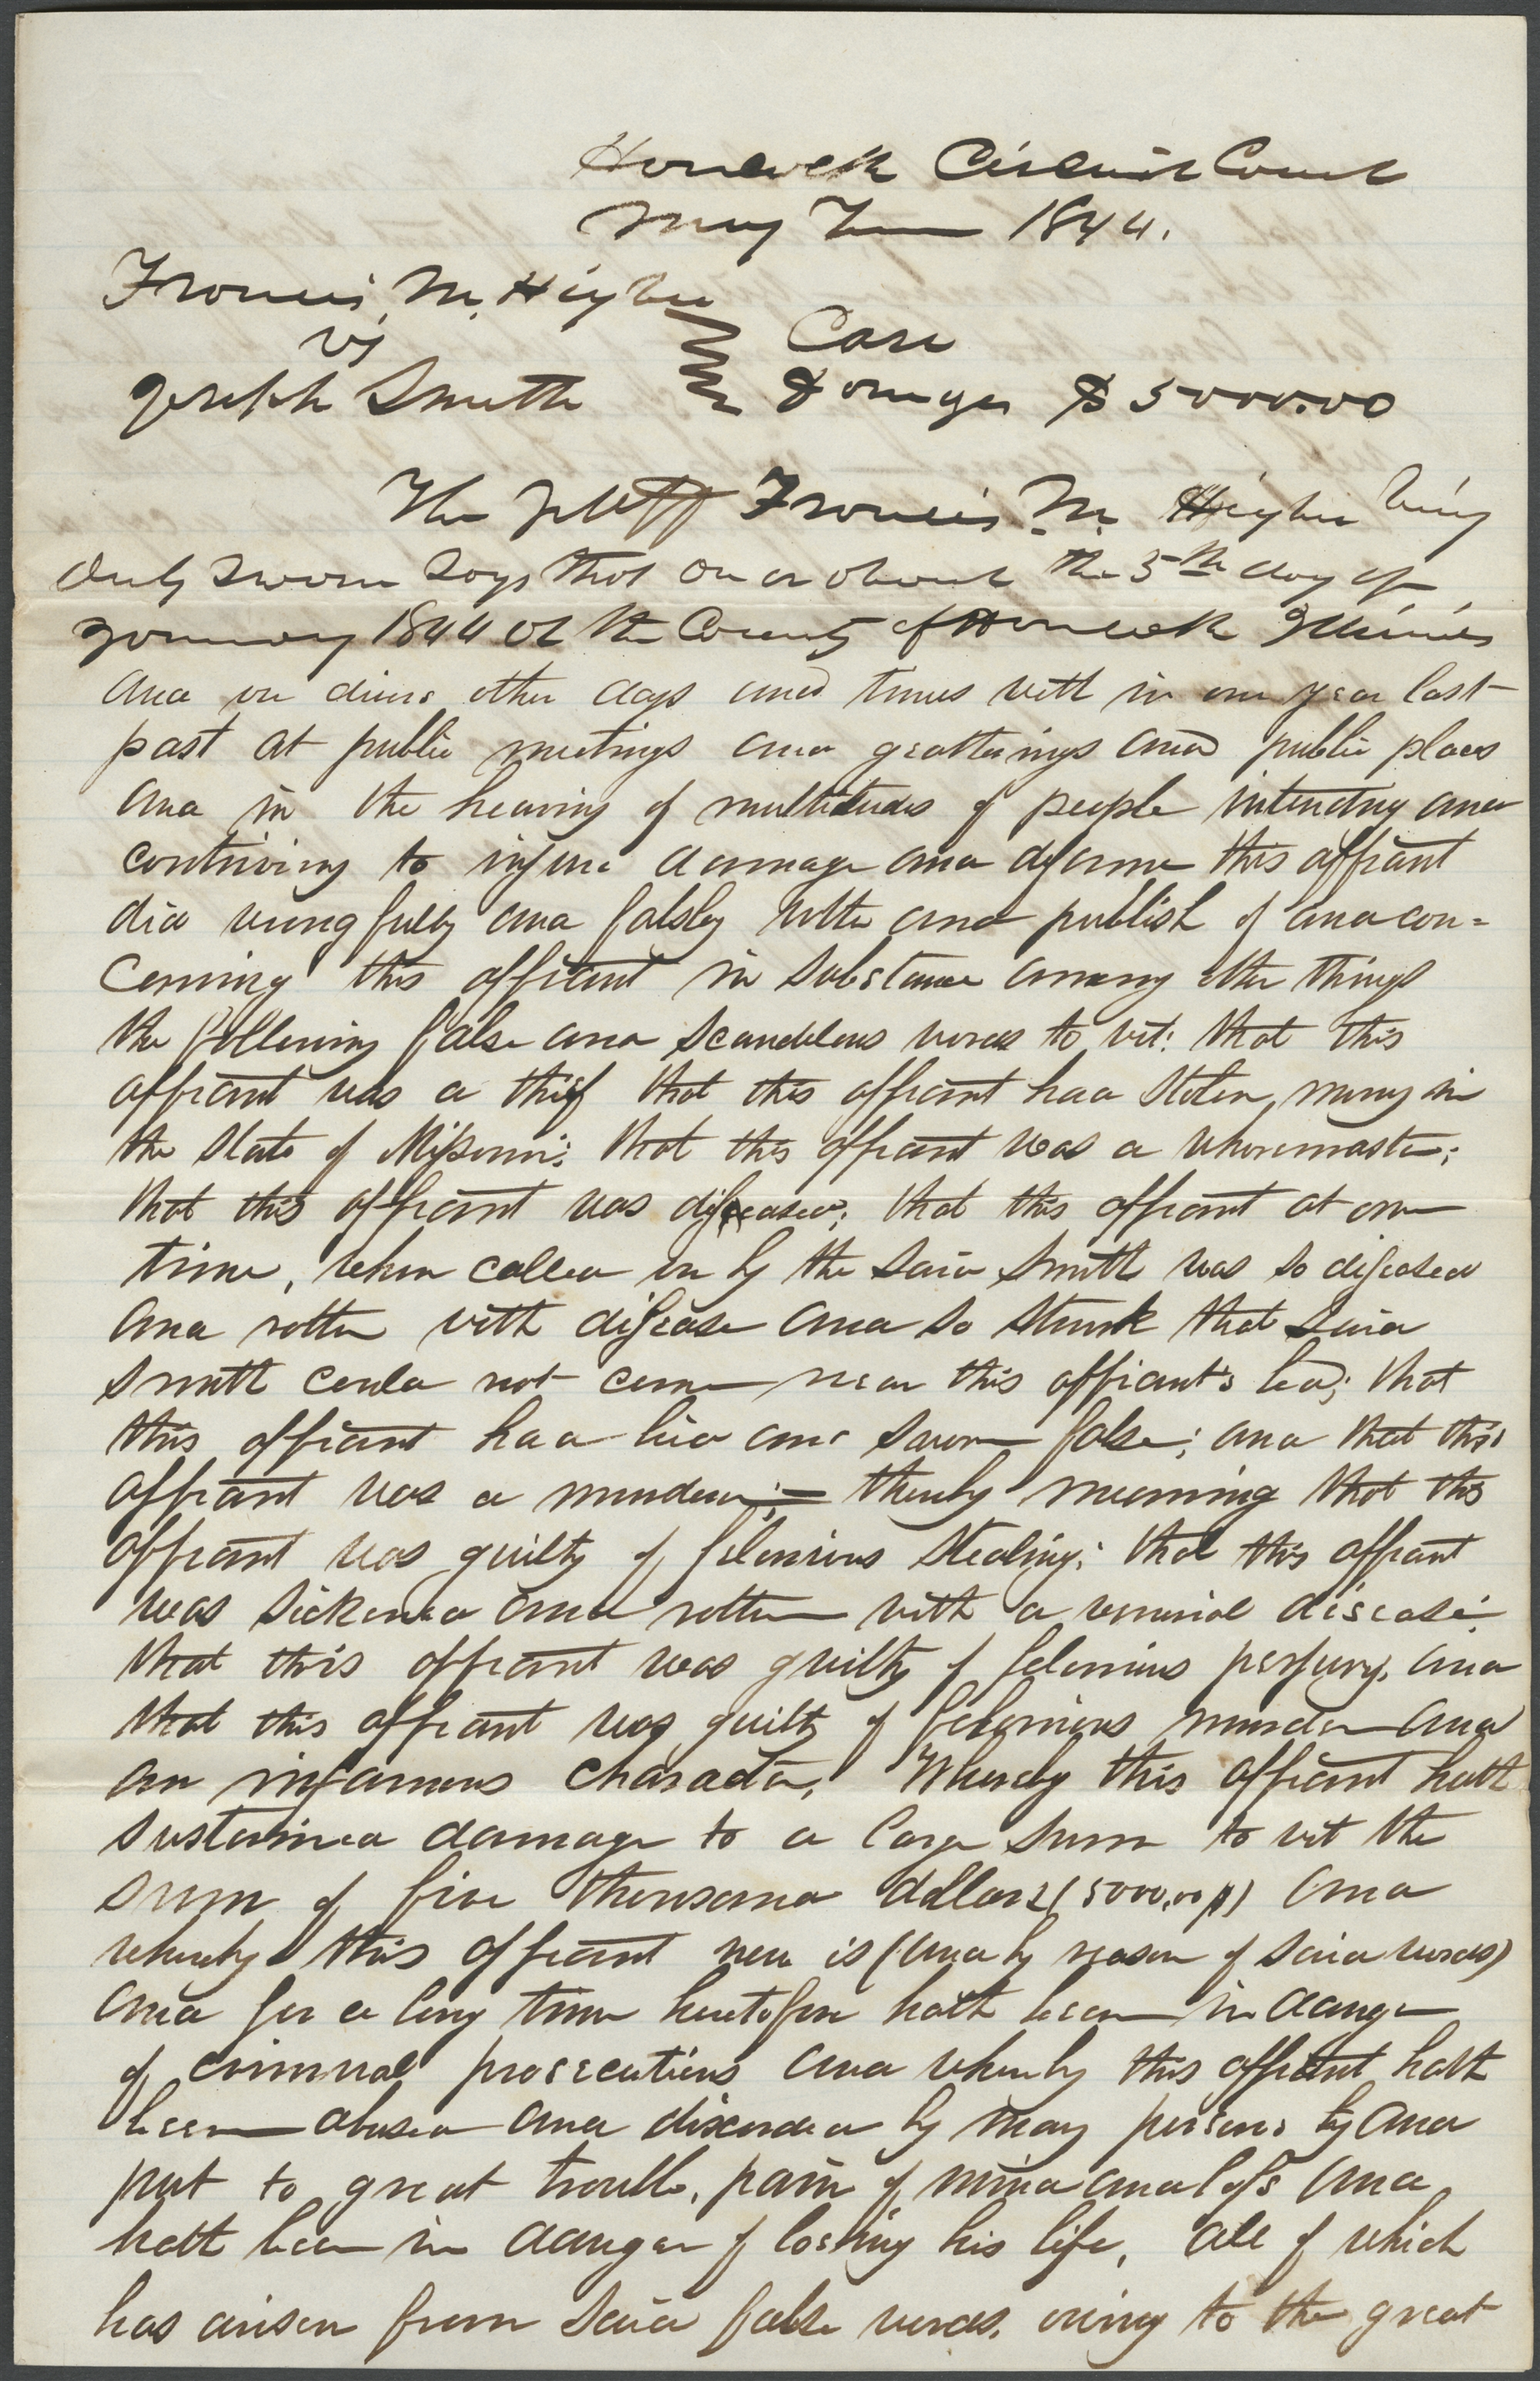 Hancock Circuit Court
May Term 1844.
Francis M. Higbee
vs
Case
Joseph Smith
Damages $5000.00
The pltff Francis M. Higbee being
duly sworn says that on or about the 5th day of
January 1844 at the County of Hancock Illinois
and on divers other days and times with in one year last
past at public meetings and geatherings and public places
and in the hearing of multitudes of people intending and
contriving to injure damage and defame this affiant
did wrongfully and falsley utter and publish of and con=
cerning this affiant in substance among other things
the following false and scandelous words to wit: that this
affiant was a thief that this affiant had stolen, money in
the state of Missouri; that this affiant was a whoremaster;
that this affiant was diseased; that this affiant at one
time, when called on by the said Smith was so diseased
and rotten with disease and so stunk that said
Smith could not come near this affiant's bed; that
this affiant had lied and sworn false; and that this
affiant was a murderer;= thereby meaning that this
affiant was guilty of felonious stealing; that this affiant
was sickened and rotten with a venerial disease;
that this affiant was guilty of felonious perjury, and
that this affiant was guilty of felonious murder and
an infamous character, Whereby this affiant hath
sustained damage to a large sum to wit the
sum of five thousand dollars (5000.00$) and
whereby this affiant now is (and by reason of said words)
and for a long time heretofore hath been in danger
of criminal prosecutions and whereby this affiant hath
been abused and discarded by many persons by and
put to great trouble, pain of mind and loss and
hath been in danger of loseing his life, all of which
has arisen from said false words, owing to the great